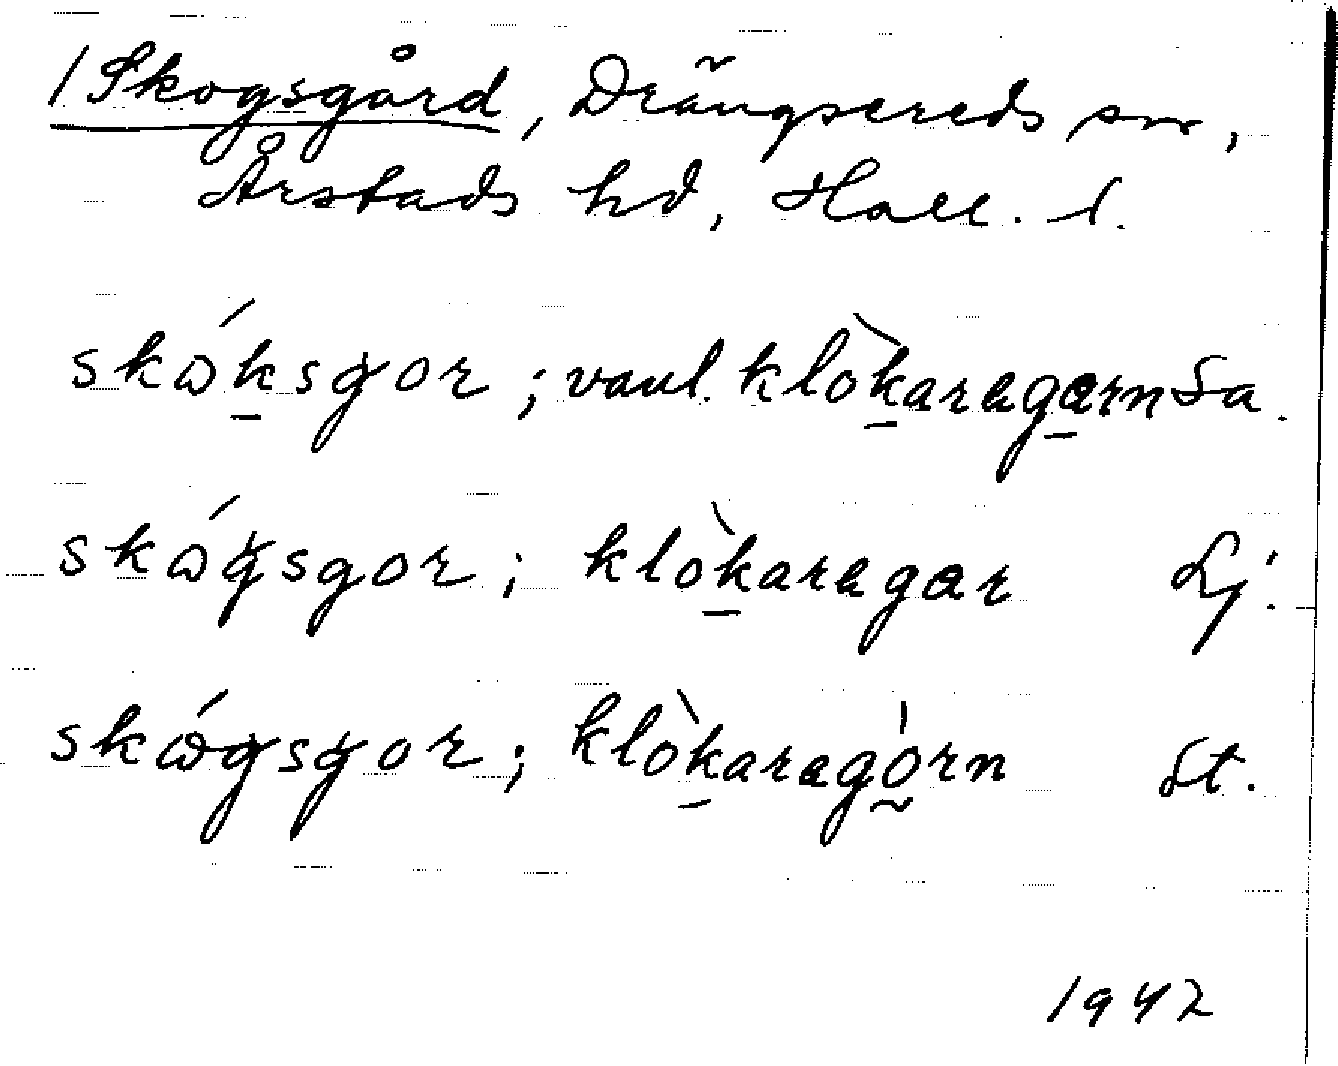 / Skogsgård, Drängsereds sn,
Årstads hd, Hall. l.
skώksgor ; vanl. klòkaragarn Sa.
skώgsgor ; klòkaragar Lj.
skώgsgor ; klòkaragòrn St.
1942